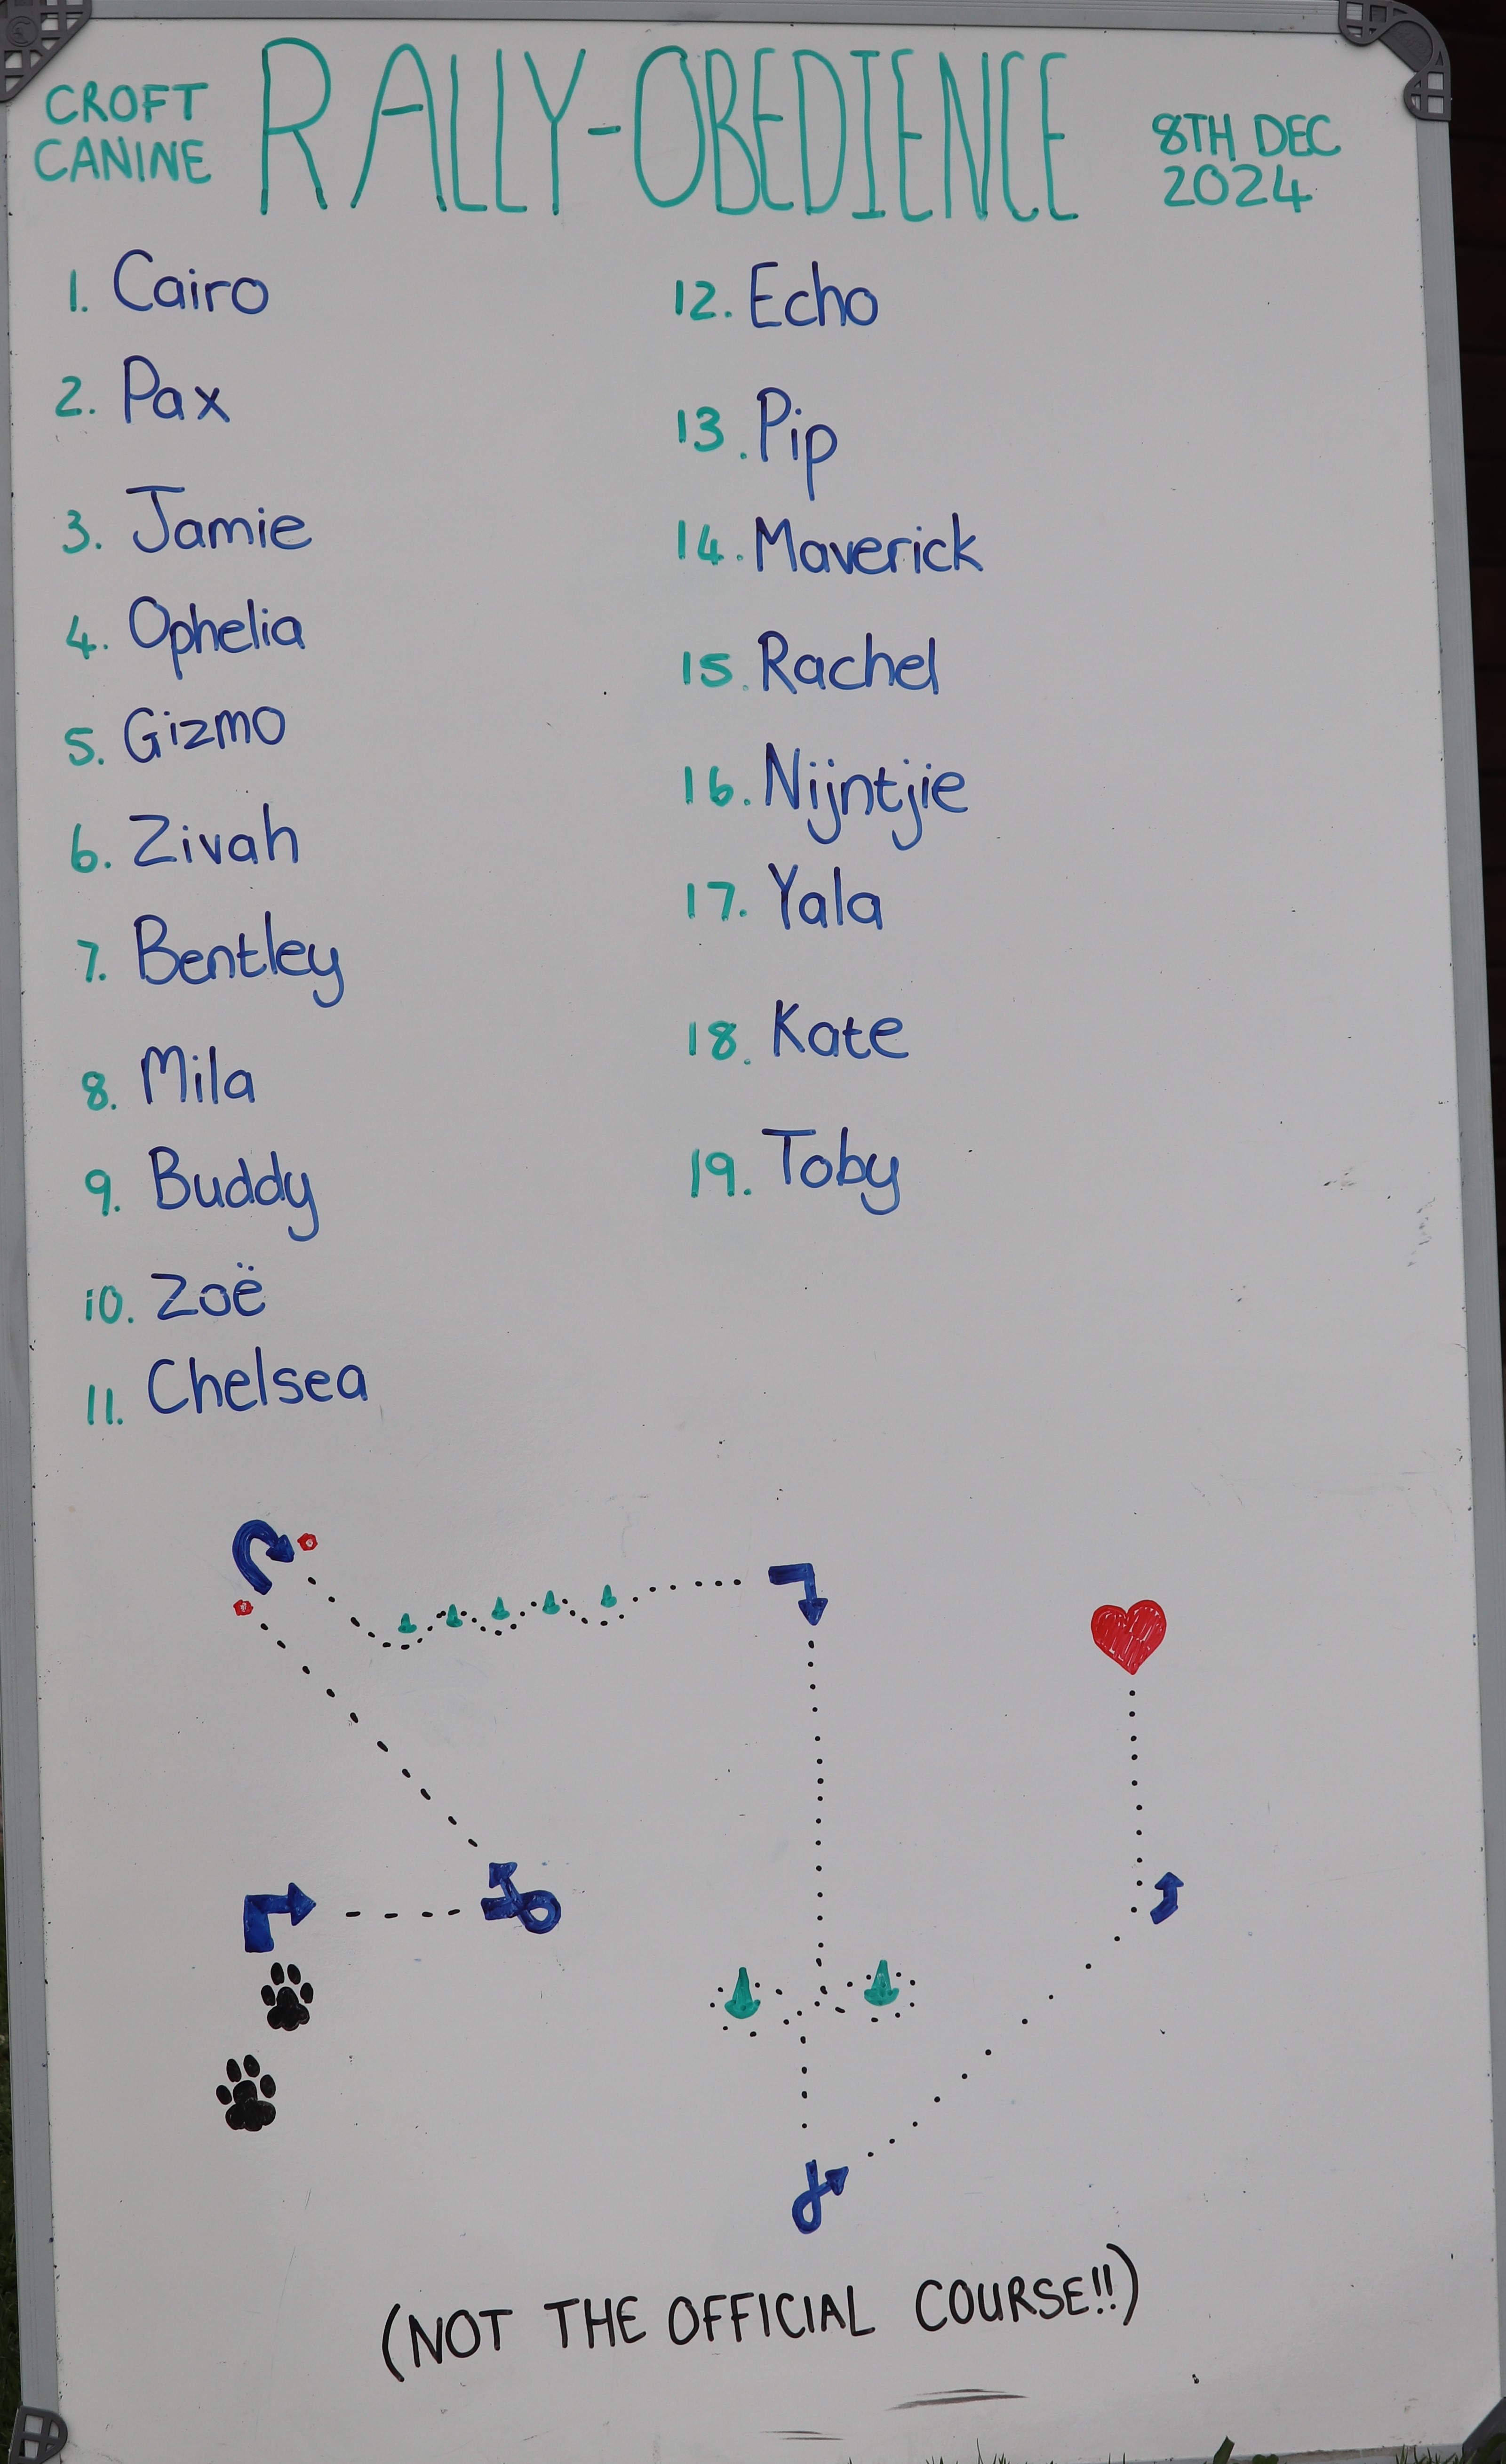 CROFT
CANINE
RALLY-OBEDIENCE
8TH DEC
2024
1. Cairo
2. Pax
3. Jamie
4. Ophelia
5. Gizmo
6. Zivah
7. Bentley
8. Mila
9. Buddy
10. Zoë
11. Chelsea
12. Echo
13. Pip
14. Maverick
15. Rachel
16. Nijntjie
17. Yala
18. Kate
19. Toby
(NOT THE OFFICIAL COURSE!!)